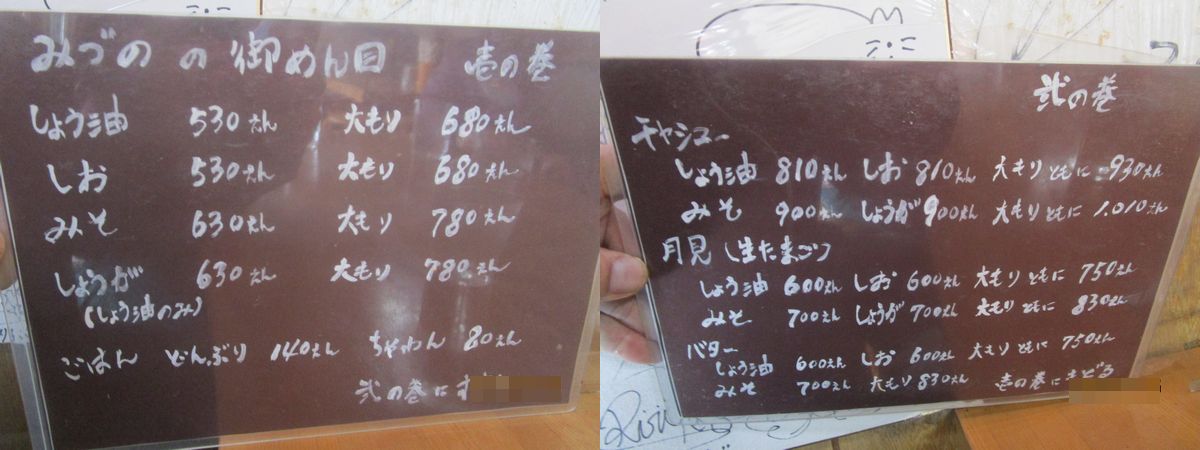 みづの の 御めん目 壱の巻
しょう油 530えん 大もり 680えん
しお 530えん 大もり 680えん
みそ 630えん 大もり 780えん
しょうが 630えん 大もり 780えん
(しょう油のみ)
ごはん どんぶり 140えん ちゃわん 80えん
弐の巻に
弐の巻
チャシュー
しょう油 810えん しお 810えん 大もり ともに 930えん
みそ 900えん しょうが 900えん 大もり ともに 1.010えん
月見 (生たまご)
しょう油 600えん しお 600えん 大もり ともに 750えん
みそ 700えん しょうが 700えん 大もり ともに 830えん
バター
しょう油 600えん しお 600えん 大もり ともに 750えん
みそ 700えん 大もり 830えん 壱の巻にもどる